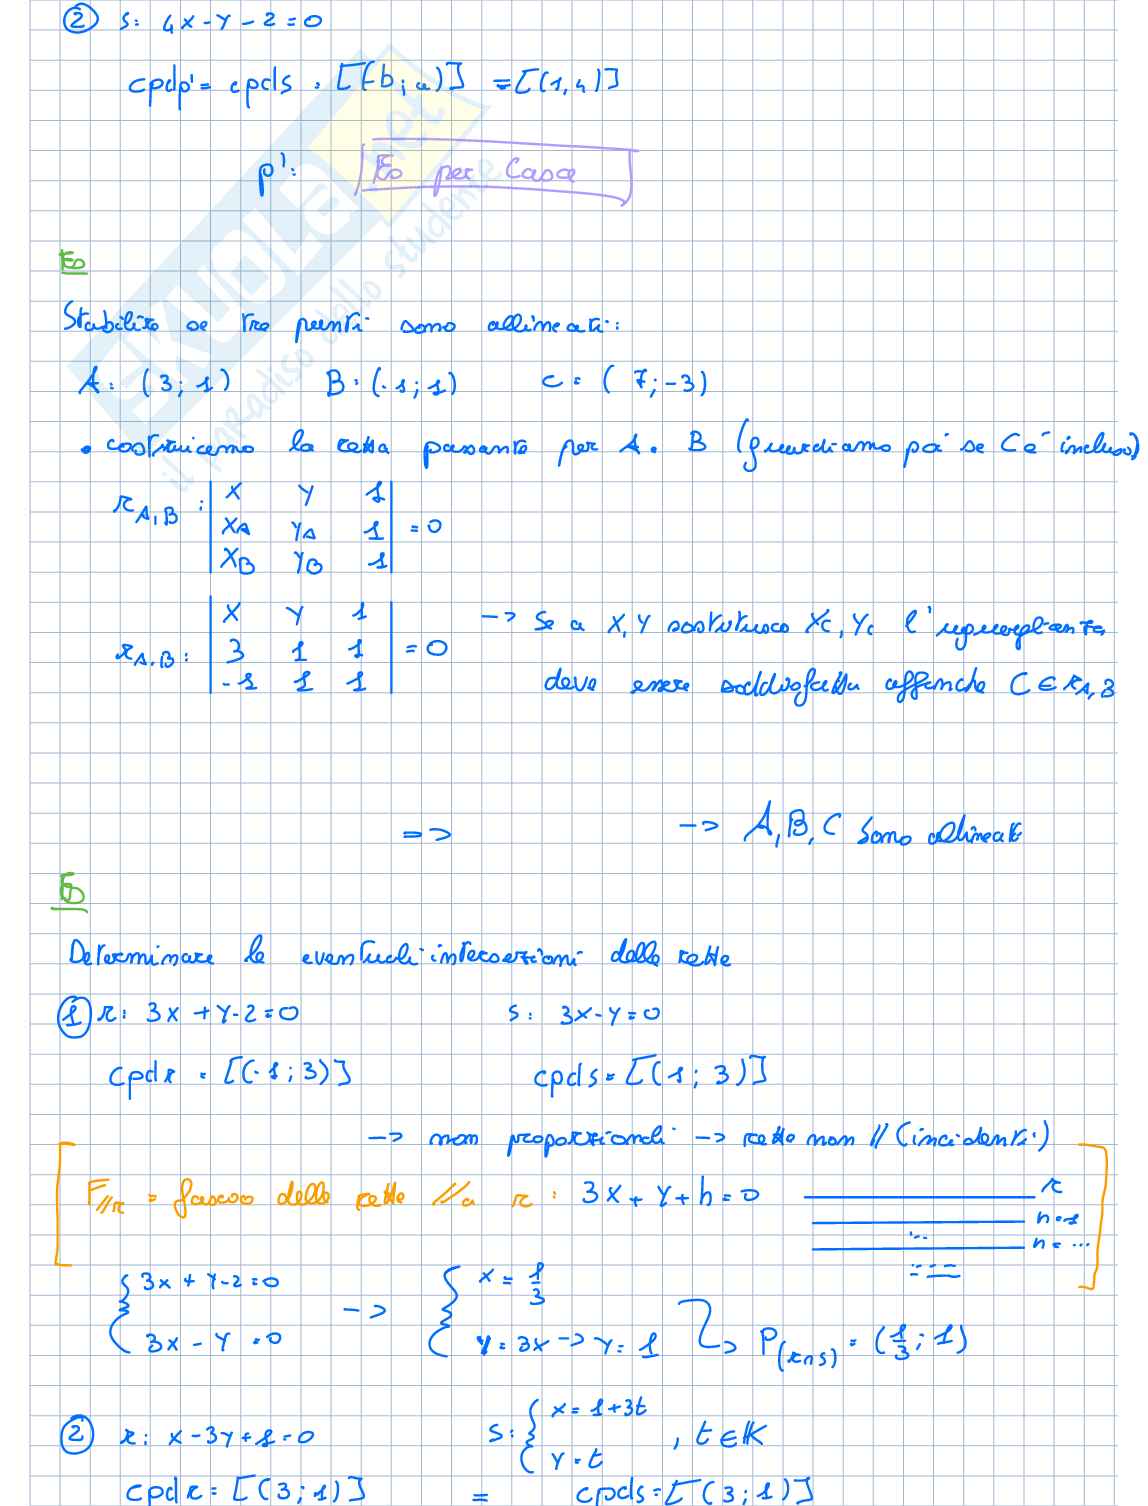 ② s: 4x-y-2=0
cpdp' = cpds = [(-b; a)] = [(1,4)]
p': Es per Casa
Es
Stabilire se tre punti sono allineati:
A: (3; 1) B: (-1; 1) C = (7; -3)
• costruiamo la retta passante per A e B (guardiamo poi se C è incluso)
r A,B : | x y 1 |
| xA yA 1 | = 0
| xB yB 1 |
r A,B : | x y 1 |
| 3 1 1 | = 0
| -1 1 1 |
-> Se a x, y sostituisco xc, yc l'uguaglianza
deve essere soddisfatta affinché C ∈ r A,B
=> -> A, B, C sono allineati
Es
Determinare le eventuali intersezioni delle rette
① r: 3x+y-2=0 s: 3x-y=0
cpdr = [(-1; 3)] cpds = [(1; 3)]
-> non proporzionali -> rette non // (incidenti)
F//r = fascio delle rette // a r : 3x+y+h=0
r
h=1
h=...
{ 3x+y-2=0
3x-y=0
-> { x = 1/3
y = 3x -> y = 1
P(r∩s) = (1/3; 1)
② r: x-3y+1=0 s: { x = 1+3t
y = t
, t ∈ K
cpdr = [(3; 1)] = cpds = [(3; 1)]
SKUOLA.net
il paradiso dello studente